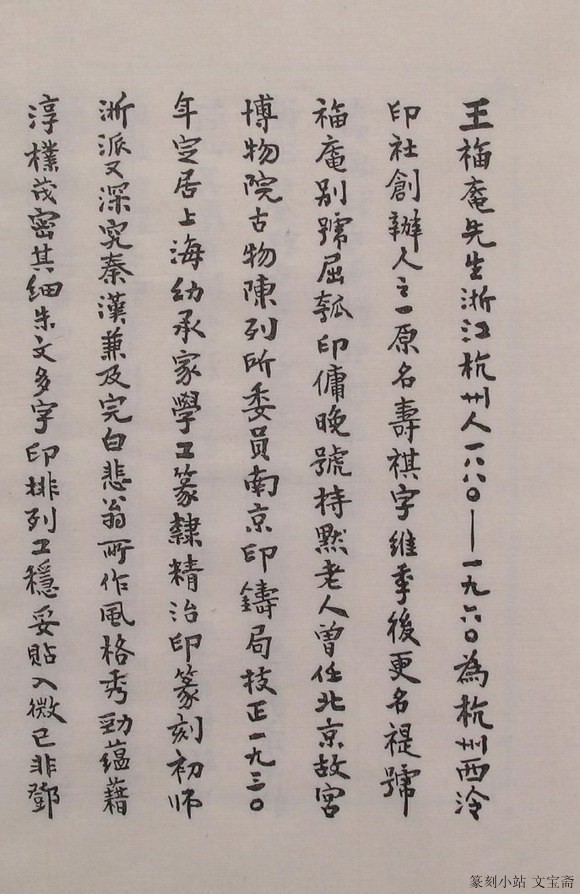 王福庵先生浙江杭州人一八八〇——一九六〇為杭州西泠
印社創辦人之一原名壽祺字維季後更名禔號
福庵別號屈瓠印傭晚號持默老人曾任北京故宮
博物院古物陳列所委員南京印鑄局技正一九三〇
年定居上海幼承家學工篆隸精治印篆刻初師
浙派又深究秦漢兼及完白悲翁所作風格秀勁蘊藉
淳樸茂密其細朱文多字印排列工穩妥貼入微已非鄧
篆刻小站 文宝斋